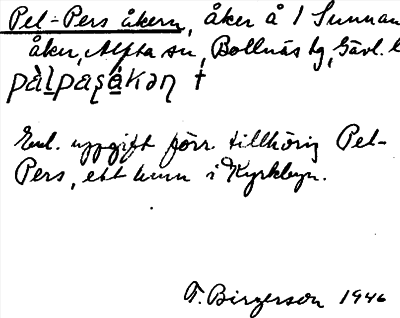 Pel-Pers åkern, åker å 1 Sunnan-
åker, Alfta sn, Bollnäs tg, Gävl. l
pàlpaʂåkəɳ †
Enl. uppgift förr tillhörig Pel-
Pers, ett hemm i Kyrkbyn.
F. Birgerson 1946